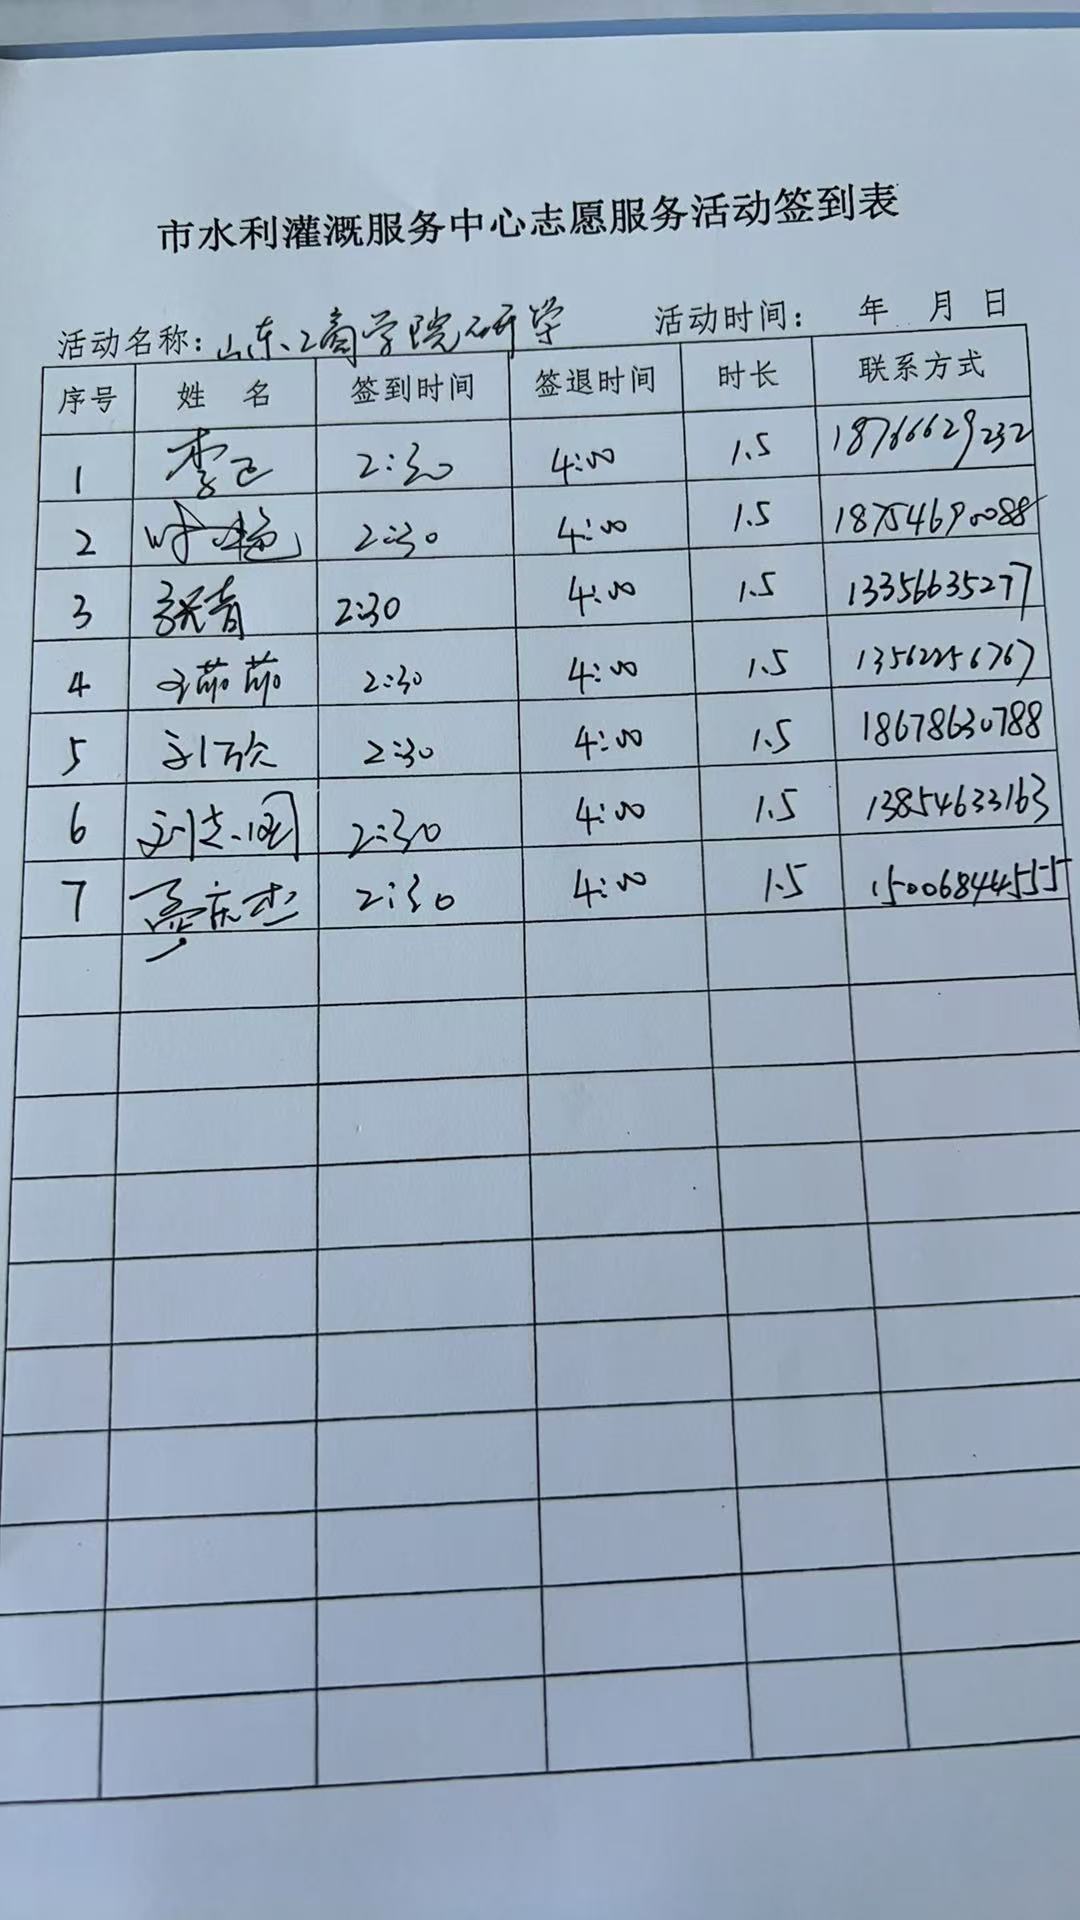 市水利灌溉服务中心志愿服务活动签到表
活动名称：山东工商学院研学 活动时间： 年 月 日
序号 姓名 签到时间 签退时间 时长 联系方式
1 2:30 4:00 1.5 18766629232
2 2:30 4:00 1.5 18754690088
3 2:30 4:00 1.5 13356635277
4 2:30 4:00 1.5 13562256767
5 刘欣 2:30 4:00 1.5 18678630788
6 2:30 4:00 1.5 13854633163
7 孟庆杰 2:30 4:00 1.5 15006844555